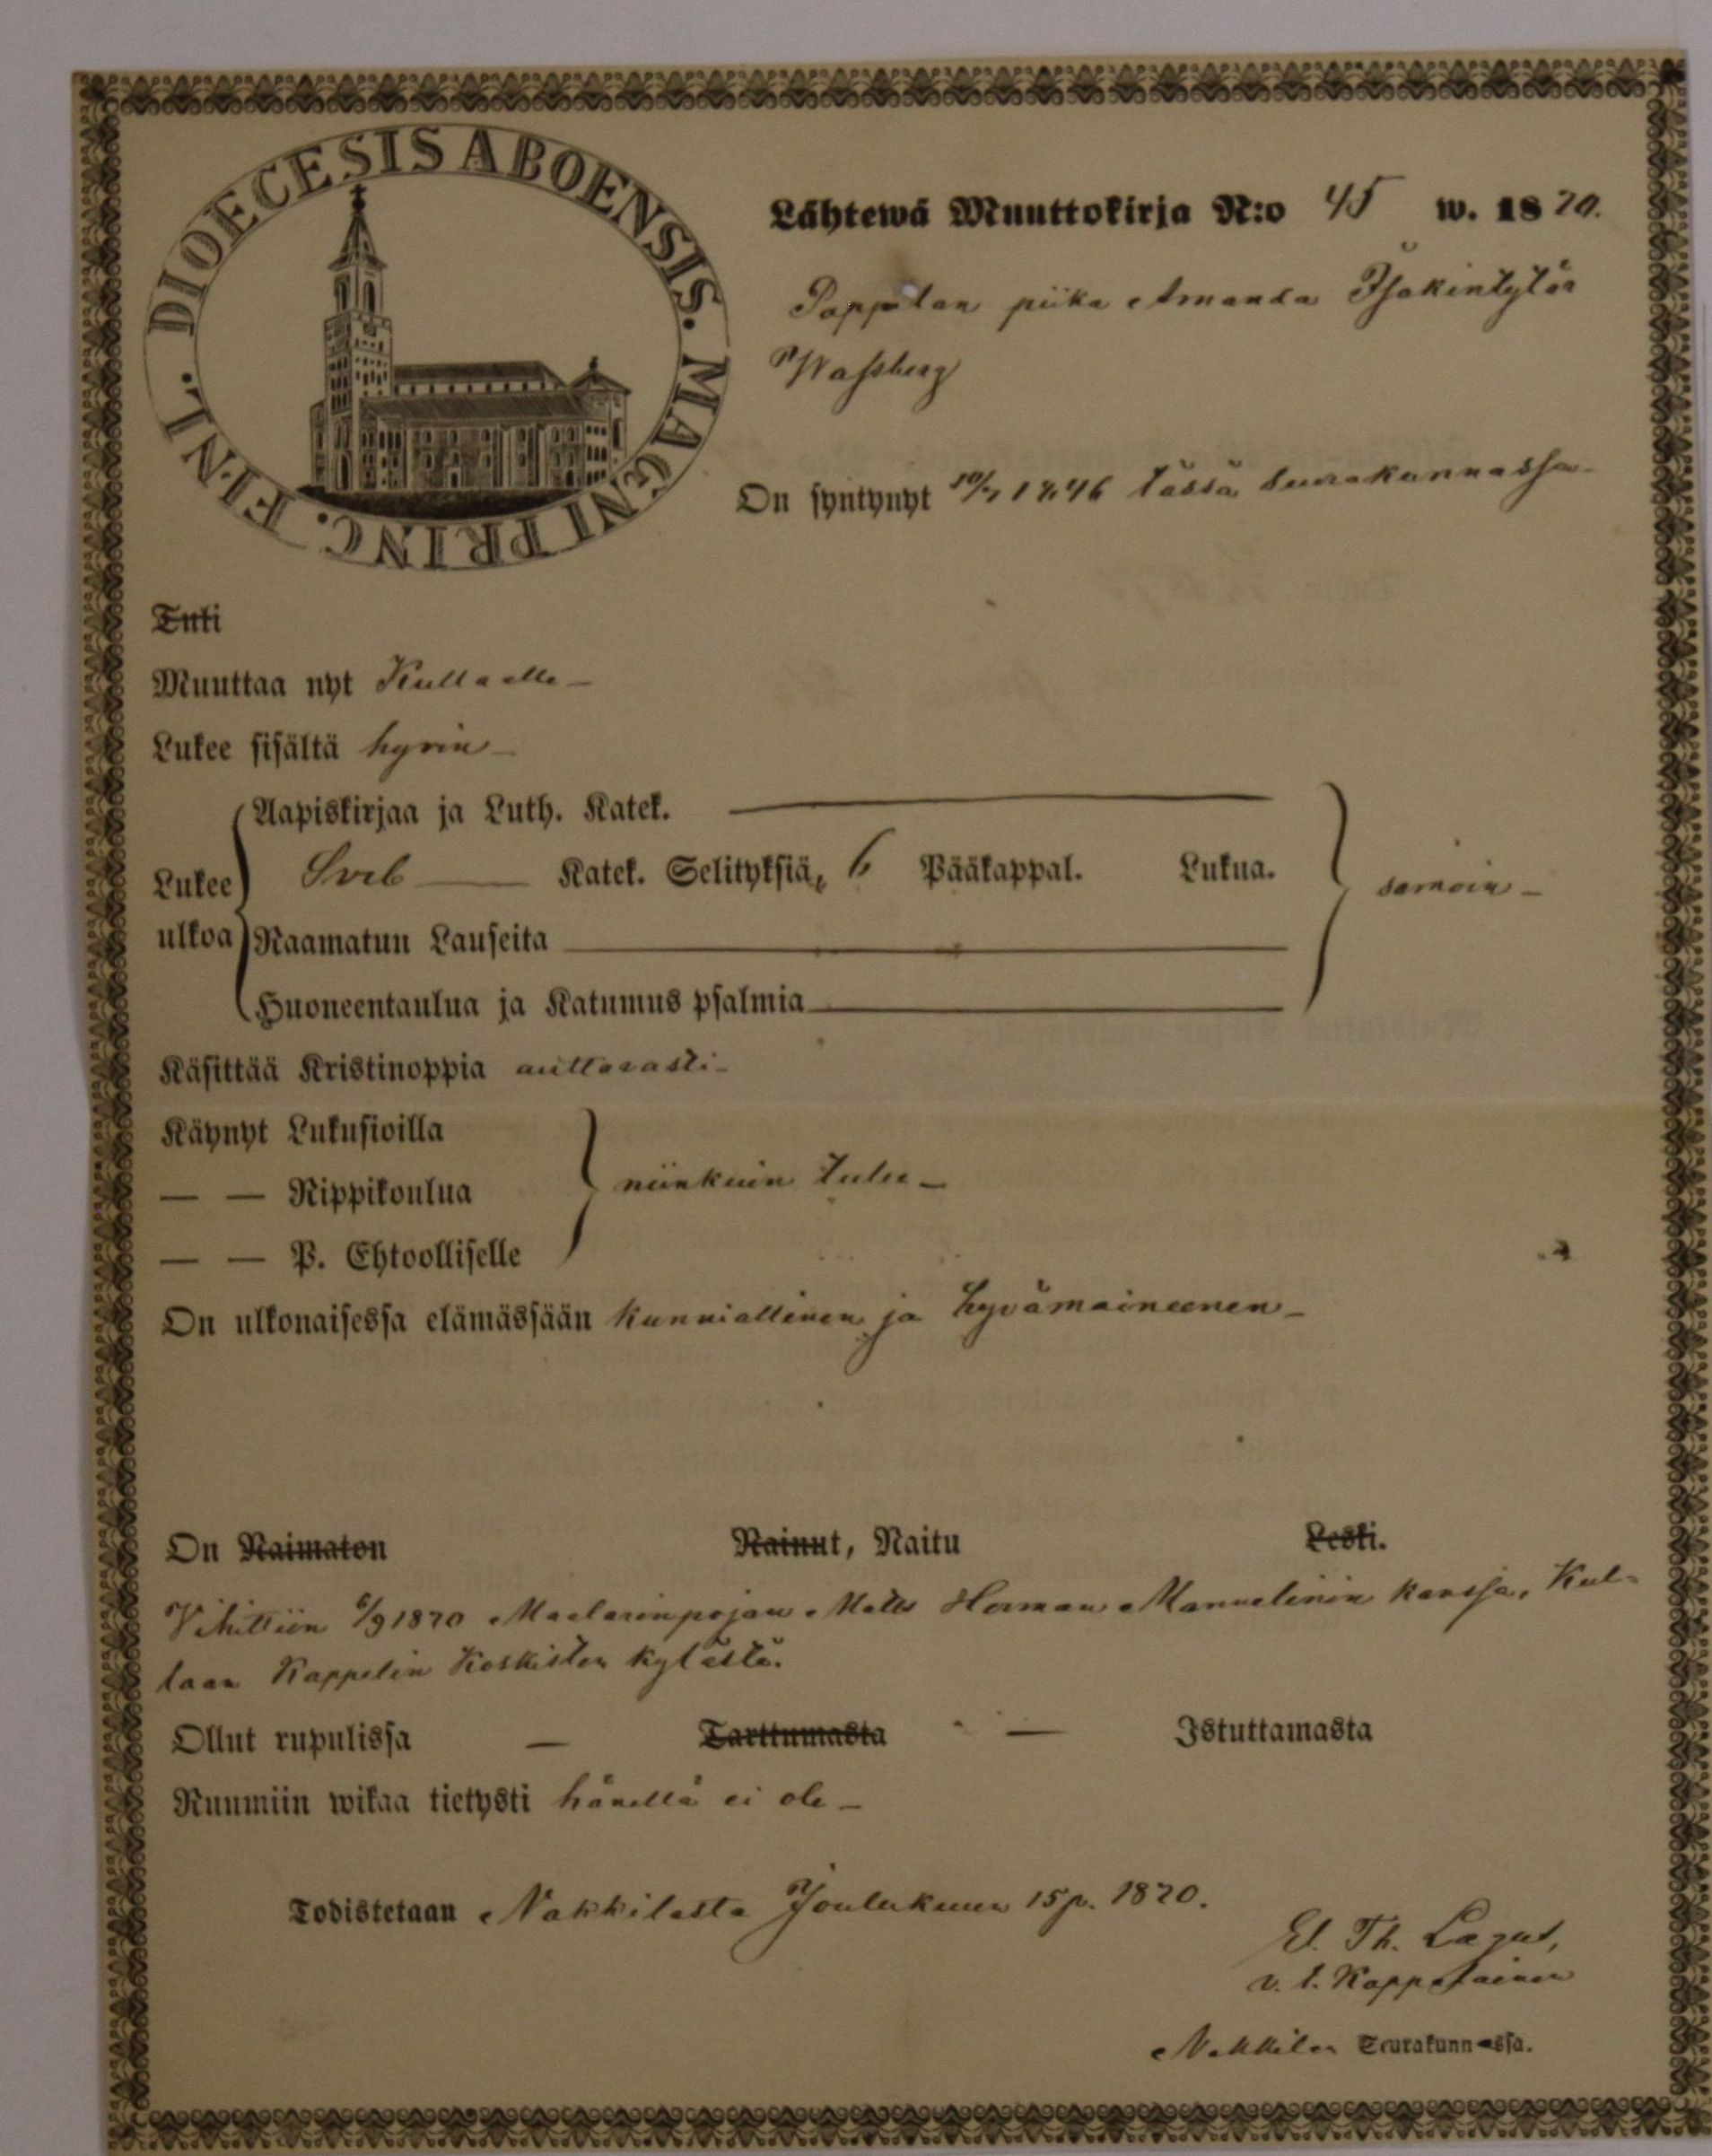 DIOECESIS ABOENSIS. MAGNI PRINC. FINL.
Lähtewä Muuttokirja N:o 45 w. 1870.
Pappilan piika Amanda Isakintytär
Wassberg
On syntynyt 10/7 1846 tässä seurakunnassa
Tuli
Muuttaa nyt Kullaalle
Lukee sisältä hyvin
Aapiskirjaa ja Luth. Katek.
Lukee Sveb Katek. Selityksiä, 6 Pääkappal. Lukua. samoin
ulkoa Raamatun Lauseita
Huoneentaulua ja Katumus psalmia
Käsittää Kristinoppia auttavasti
Käynyt Lukusioilla
— — Rippikoulua niinkuin tulee
— — P. Ehtoolliselle
On ulkonaisessa elämässään kunniallinen ja hyvämaineenen
On Naimaton Nainut, Naitu Leski.
Vihittiin 6/9 1870 Maalarinpojan Matts Herman Manuelinin kanssa, Kul-
laan Kappelin Koskisten kylästä.
Ollut rupulissa — Tarttumasta — Istuttamasta
Ruumiin wikaa tietysti hänellä ei ole
Todistetaan Nakkilasta Joulukuun 15 p. 1870.
El. Th. Lagus,
v. t. Kappalainen
Nakkilan Seurakunnassa.